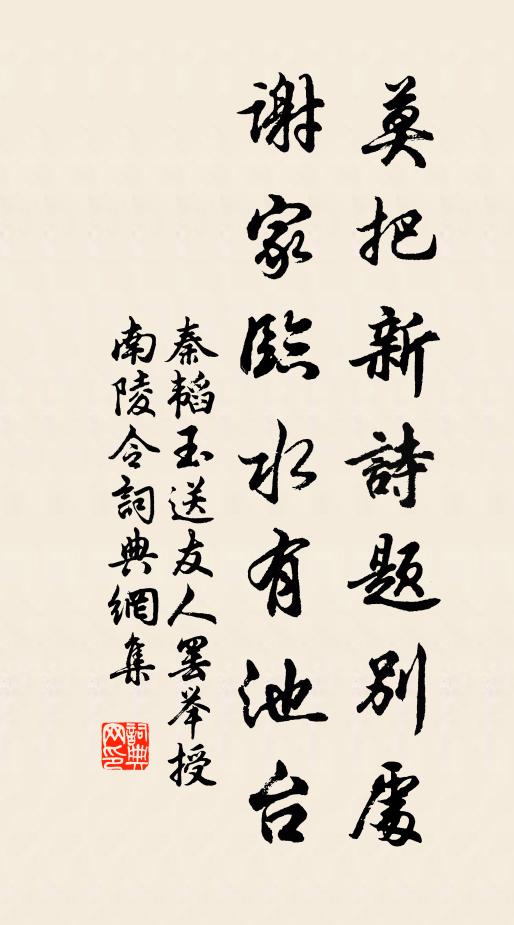 莫把新詩題別處
謝家臨水有池台
秦韜玉送友人罢举授
南陵令詞典網集
詞典网印